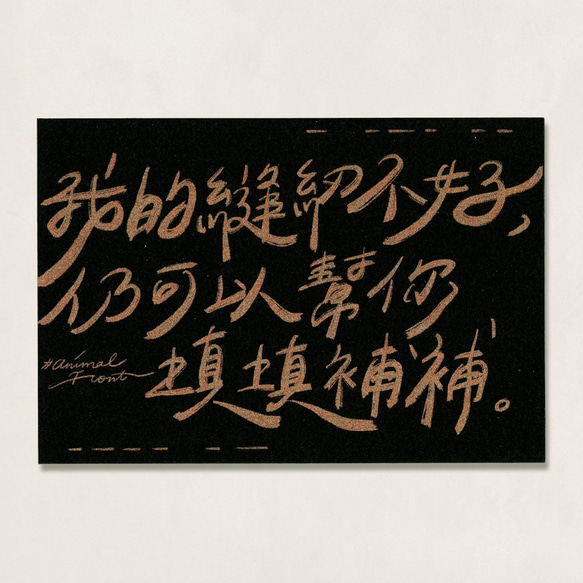 我的縫紉不好,
仍可以幫你
#Animal
Front
填填補補。